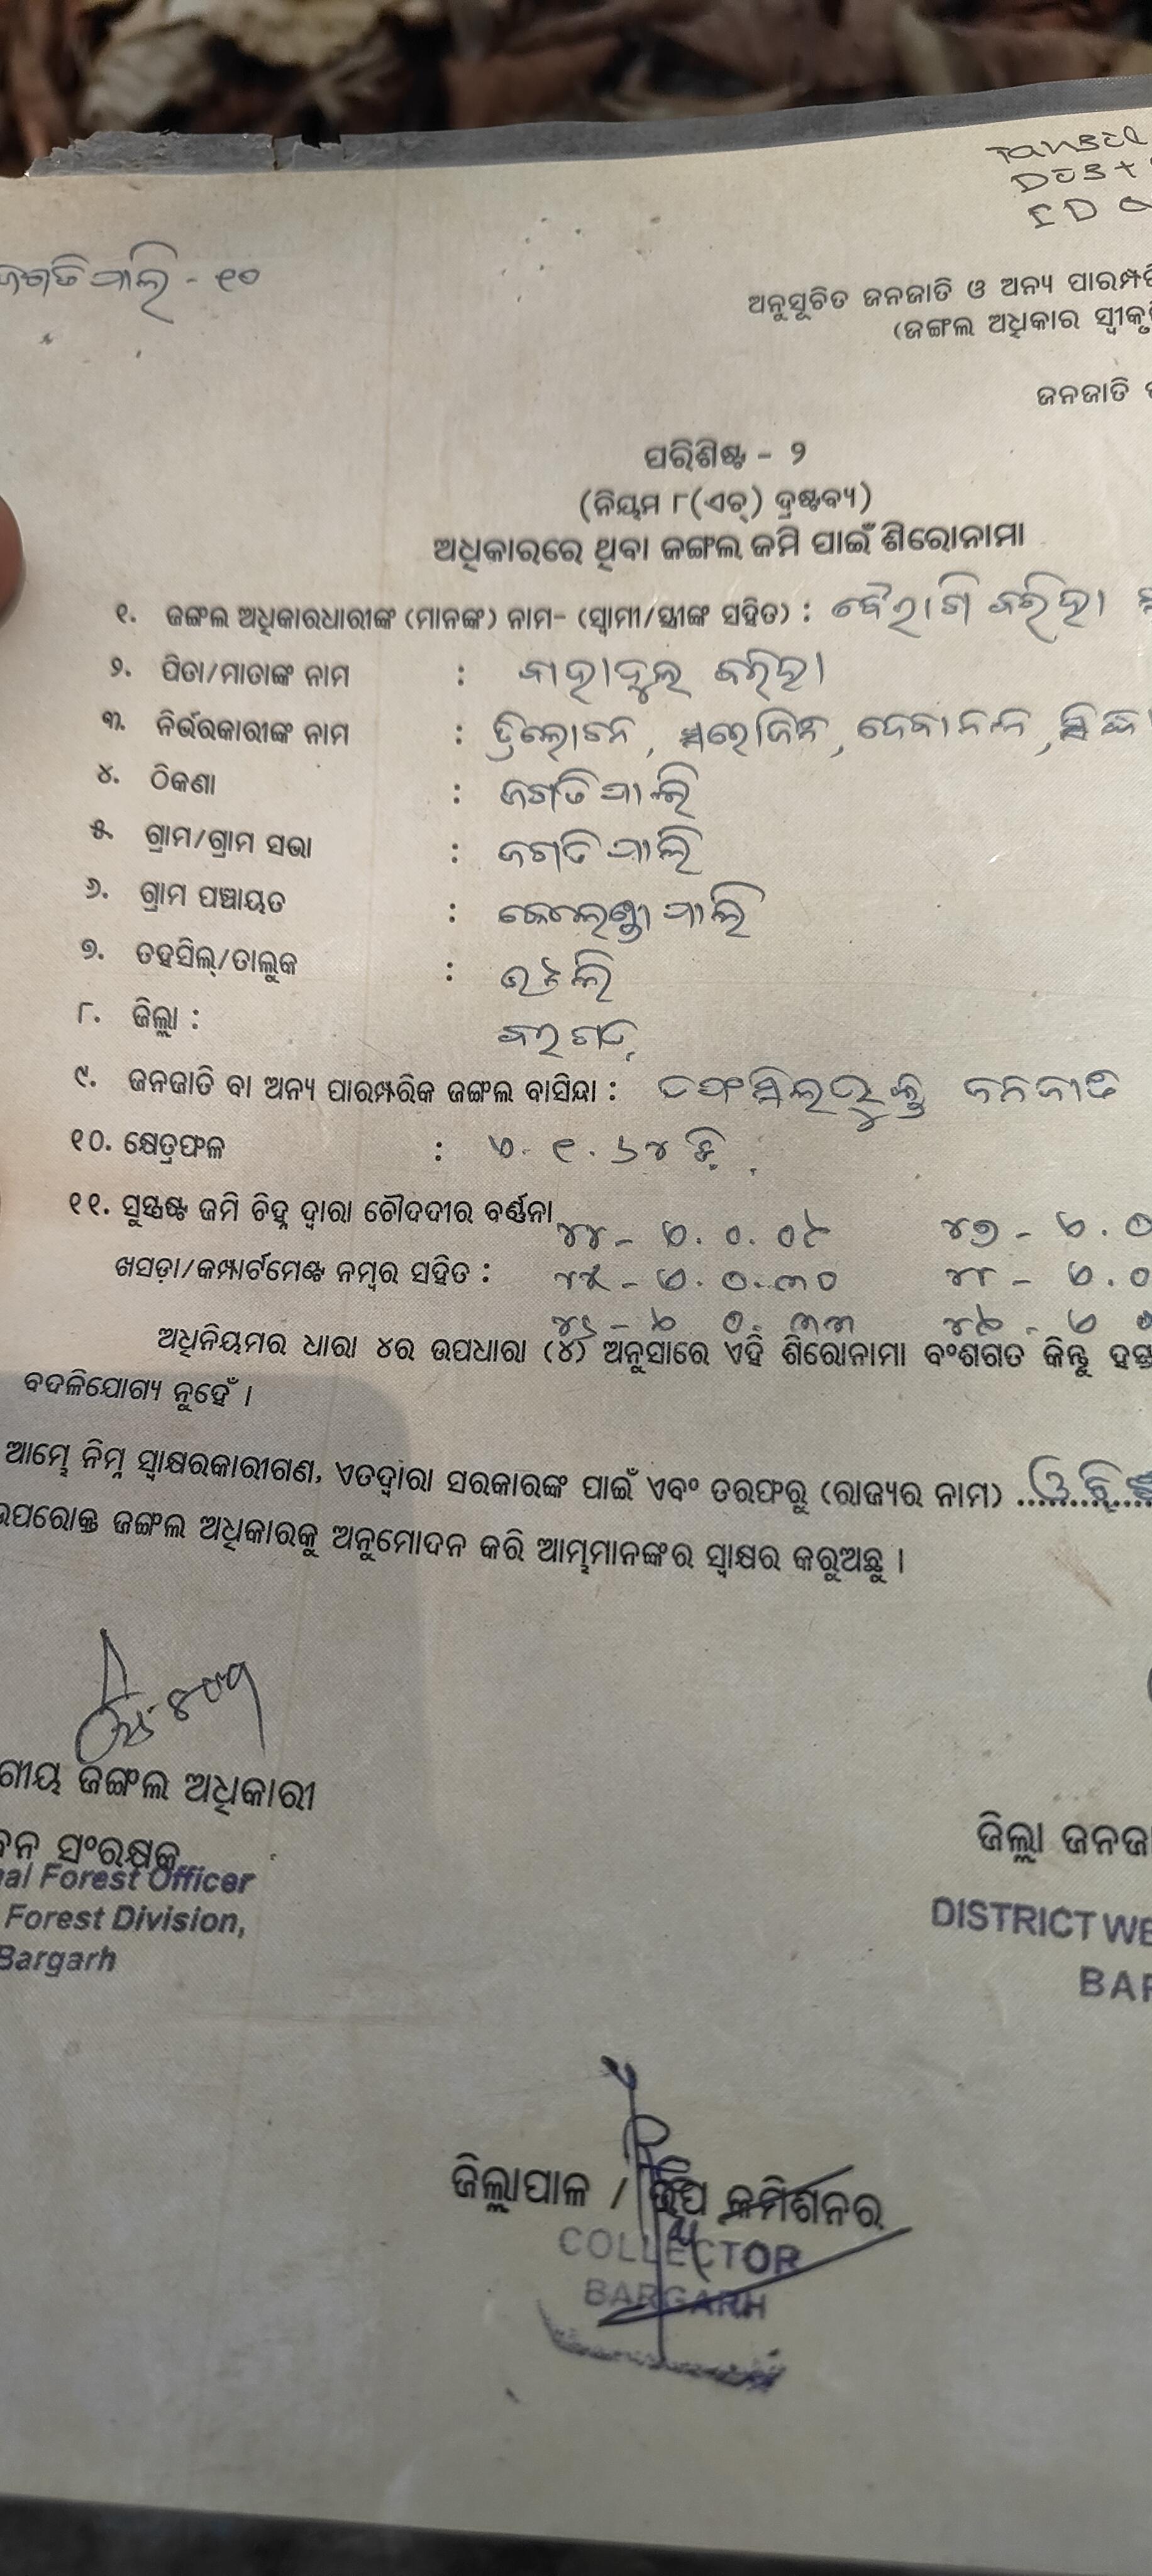 ଜଗତିପାଲି - ୧୦
ଅନୁସୂଚିତ ଜନଜାତି ଓ ଅନ୍ୟ
(ଜଙ୍ଗଲ ଅଧିକାର
ଜନଜାତି
ପରିଶିଷ୍ଟ - ୨
(ନିୟମ ୮(ଏଚ୍) ଦ୍ରଷ୍ଟବ୍ୟ)
ଅଧିକାରରେ ଥିବା ଜଙ୍ଗଲ ଜମି ପାଇଁ ଶିରୋନାମା
୧. ଜଙ୍ଗଲ ଅଧିକାରଧାରୀଙ୍କ (ମାନଙ୍କ) ନାମ- (ସ୍ୱାମୀ/ସ୍ତ୍ରୀଙ୍କ ସହିତ) : ବୈରାଗି ବରିହା
୨. ପିତା/ମାତାଙ୍କ ନାମ : ବାହାଦୁଲ ବରିହା
୩. ନିର୍ଭରକାରୀଙ୍କ ନାମ : ତ୍ରିଲୋଚନ, ସରୋଜିନ, ଦେବାନନ୍ଦ,
୪. ଠିକଣା : ଜଗତିପାଲି
୫. ଗ୍ରାମ/ଗ୍ରାମ ସଭା : ଜଗତିପାଲି
୬. ଗ୍ରାମ ପଞ୍ଚାୟତ : କେଲେଣ୍ଡାପାଲି
୭. ତହସିଲ୍/ତାଲୁକ : ଭଟଲି
୮. ଜିଲ୍ଲା : ବରଗଡ଼
୯. ଜନଜାତି ବା ଅନ୍ୟ ପାରମ୍ପରିକ ଜଙ୍ଗଲ ବାସିନ୍ଦା : ତଫସିଲଭୁକ୍ତ ଜନଜାତି
୧୦. କ୍ଷେତ୍ରଫଳ : ଏ. ୧.୬୪ ଡି.
୧୧. ସୁସ୍ପଷ୍ଟ ଜମି ଚିହ୍ନ ଦ୍ୱାରା ଚୌହଦୀର ବର୍ଣ୍ଣନା
୪୪ - ଏ.୦.୦୯ ୪୭ - ଏ.୦
ଖସଡ଼ା/କମ୍ପାର୍ଟମେଣ୍ଟ ନମ୍ବର ସହିତ : ୪୫ - ଏ.୦.୩୦ ୪୮ - ଏ.୦
୪୬ - ଏ ୦.୩୩
ଅଧିନିୟମର ଧାରା ୪ର ଉପଧାରା (୪) ଅନୁସାରେ ଏହି ଶିରୋନାମା ବଂଶଗତ କିନ୍ତୁ
ବଦଳିଯୋଗ୍ୟ ନୁହେଁ ।
ଆମ୍ଭେ ନିମ୍ନ ସ୍ୱାକ୍ଷରକାରୀଗଣ, ଏତଦ୍ୱାରା ସରକାରଙ୍କ ପାଇଁ ଏବଂ ତରଫରୁ (ରାଜ୍ୟର ନାମ)
ଉପରୋକ୍ତ ଜଙ୍ଗଲ ଅଧିକାରକୁ ଅନୁମୋଦନ କରି ଆମ୍ଭମାନଙ୍କର ସ୍ୱାକ୍ଷର କରୁଅଛୁ ।
ଜଙ୍ଗଲ ଅଧିକାରୀ
ସଂରକ୍ଷକ
Forest Officer
Forest Division,
Bargarh
ଜିଲ୍ଲା
DISTRICT
ଜିଲ୍ଲାପାଳ / ଉପ କମିଶନର
COLLECTOR
BARGARH